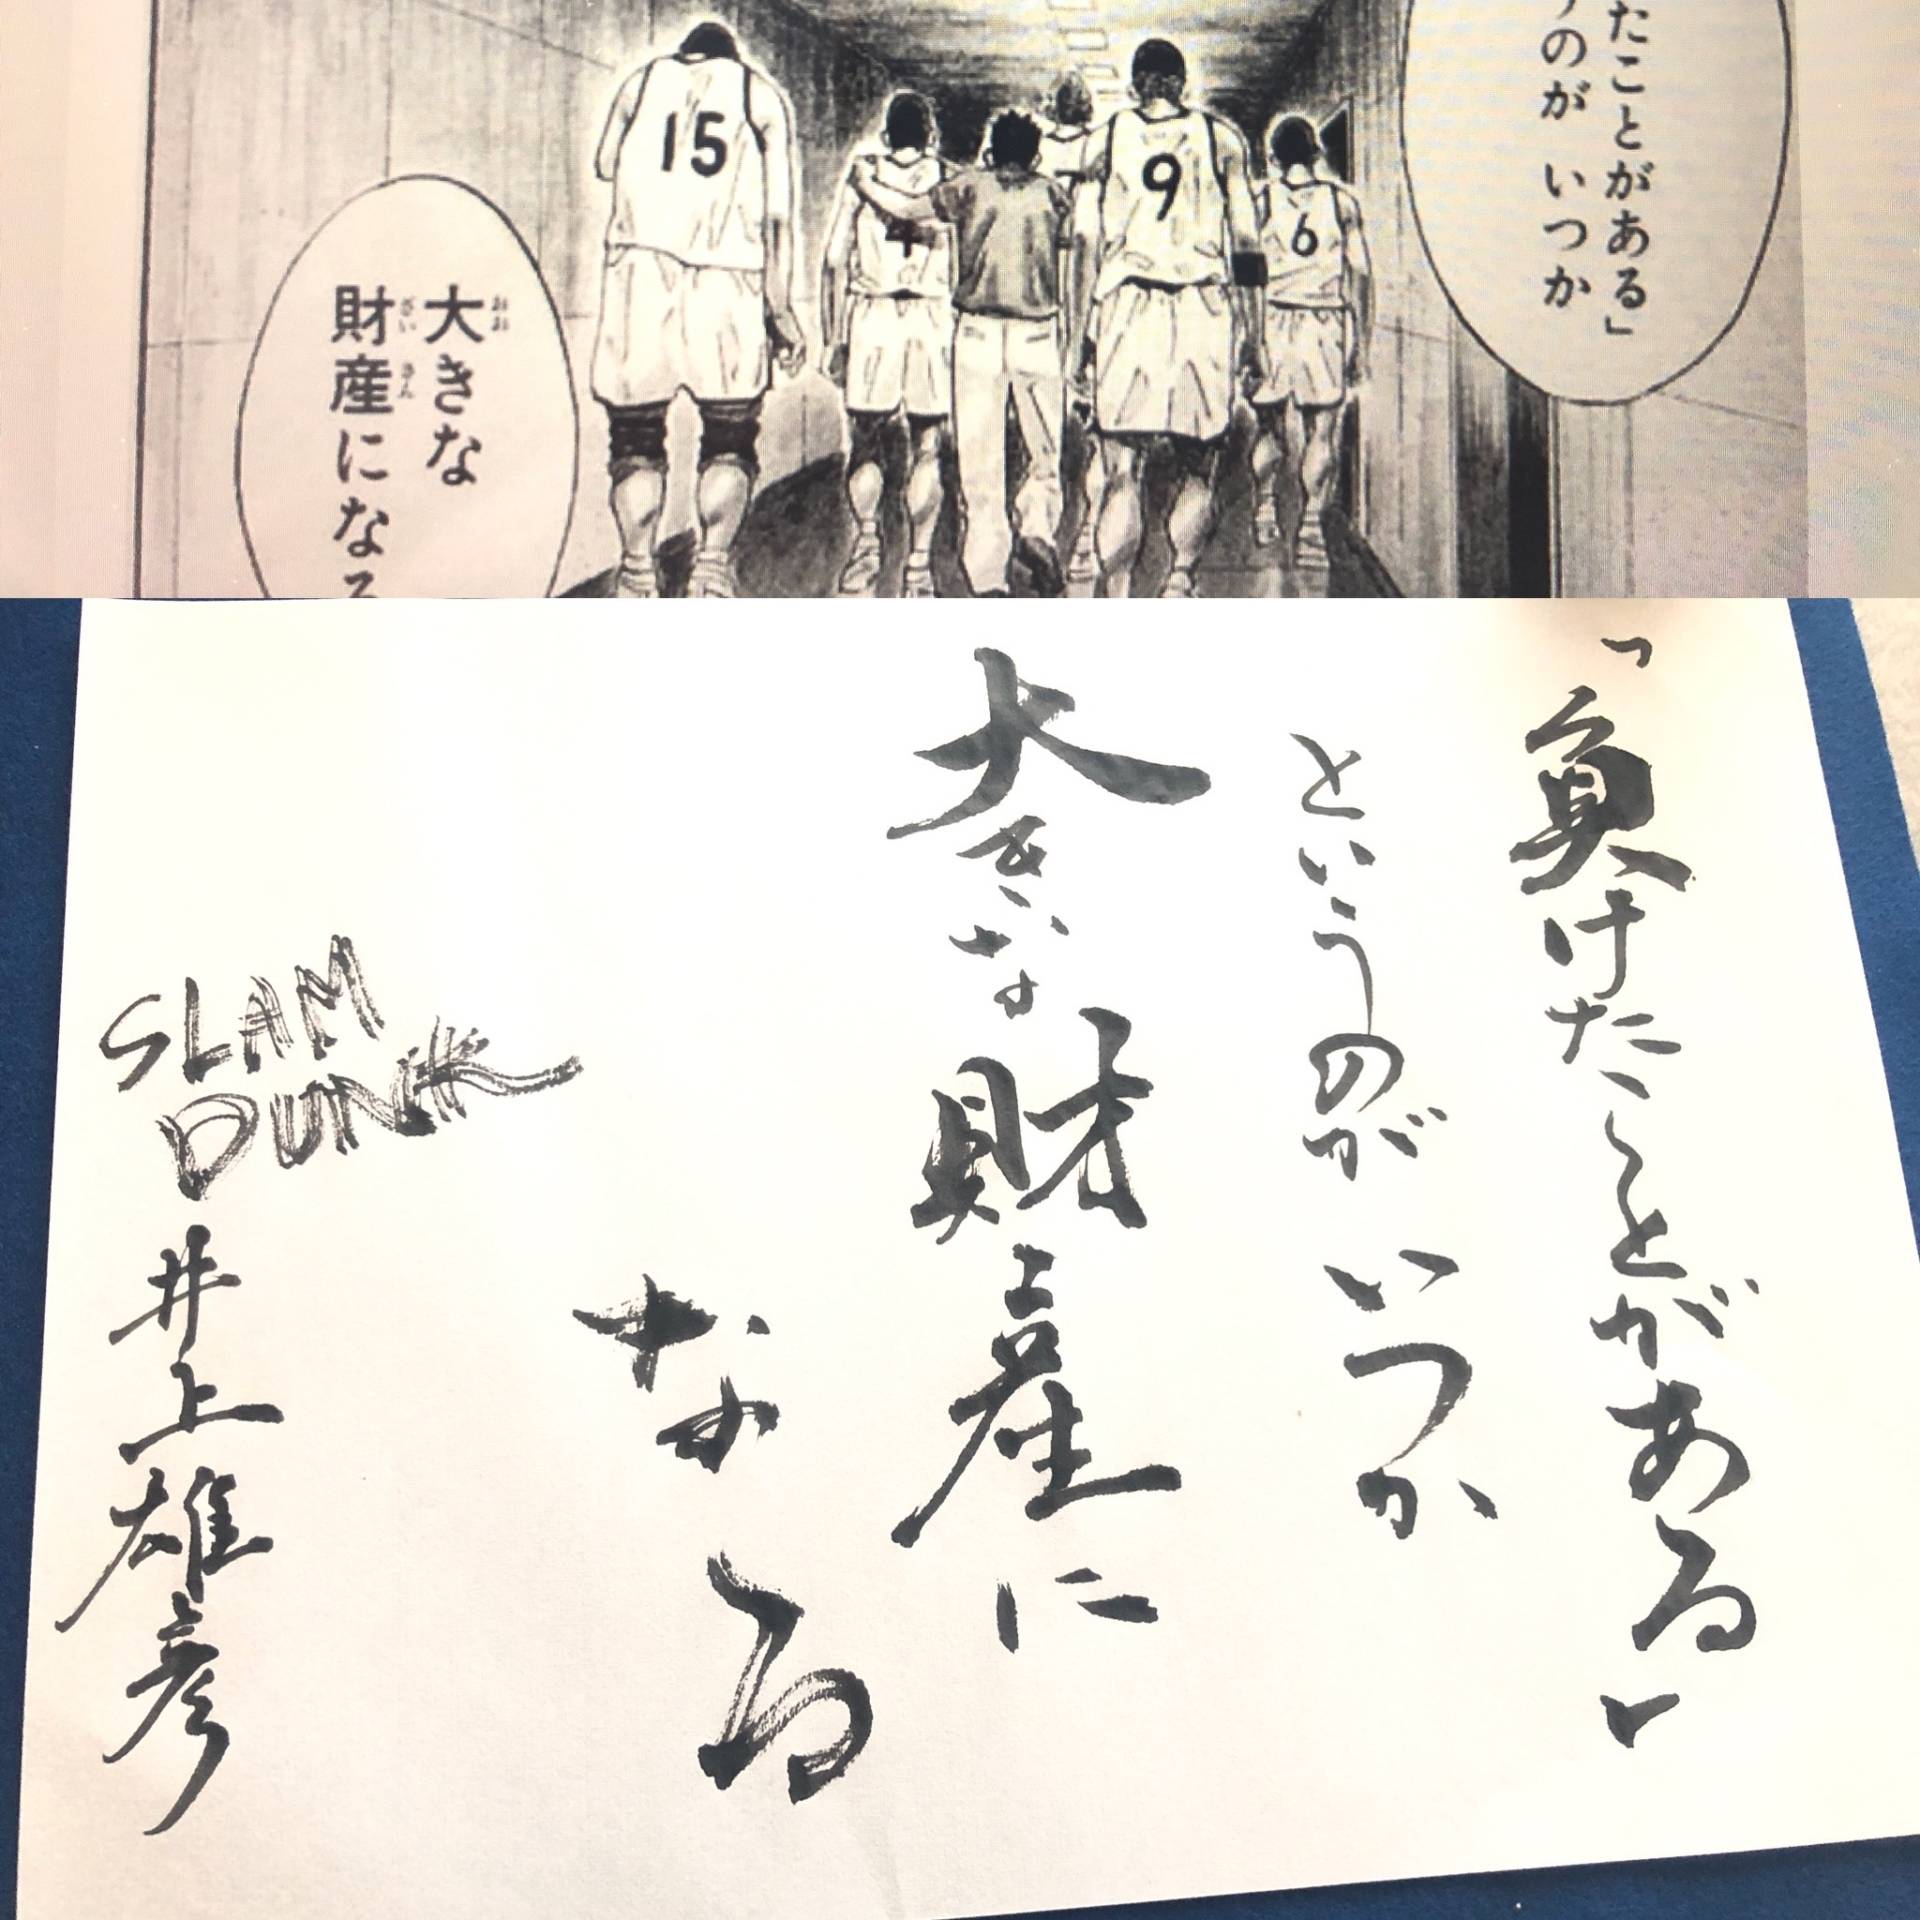 たことがある」
のが いつか
15
4
9
6
大きな
財産になる
おお
ざいさん
「負けたことがある」
というのがいつか
大きな財産に
なる
SLAM
DUNK
井上雄彦